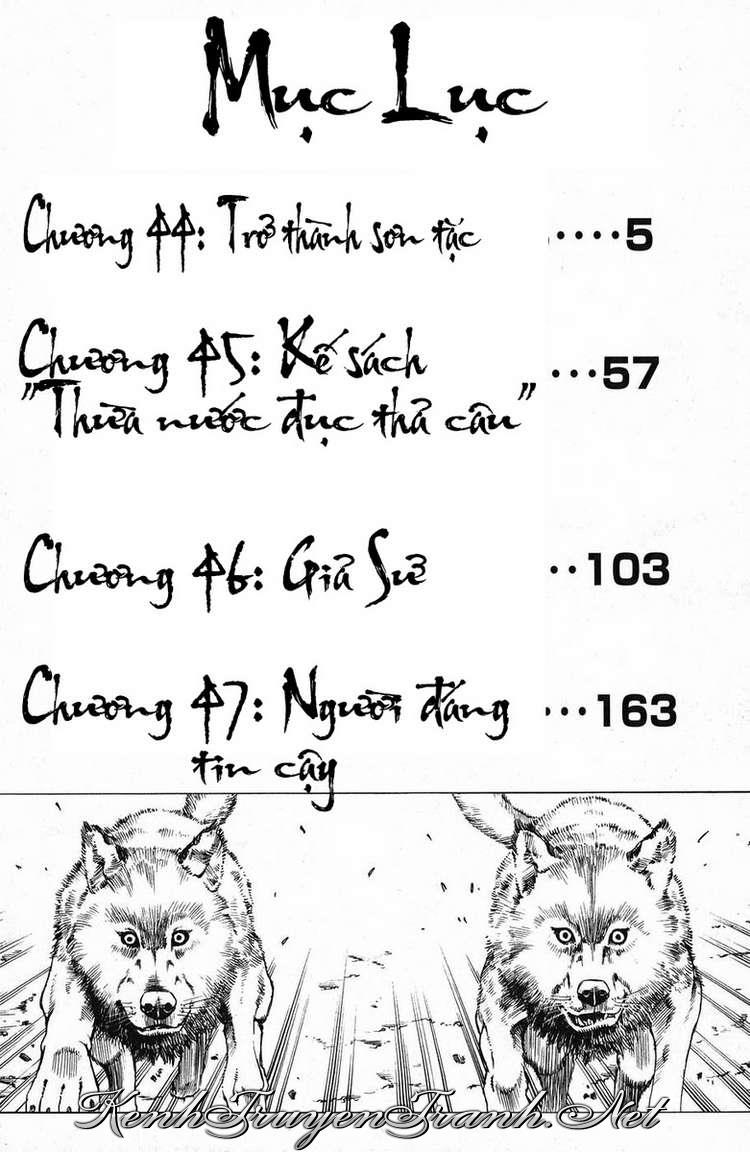 Mục Lục
Chương 44: Trở thành sơn tặc ····5
Chương 45: Kế sách ···57
"Thừa nước đục thả câu"
Chương 46: Giả Sử ··103
Chương 47: Người đáng ···163
tin cậy
KenhTruyenTranh.Net